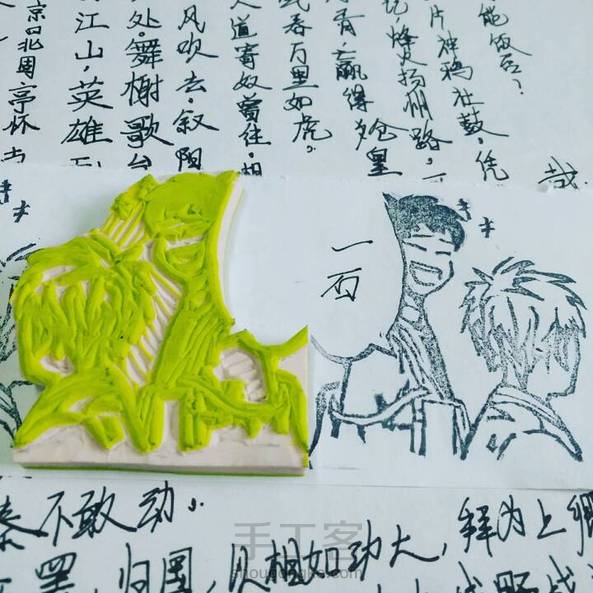 能饭否?
片神鸦社鼓。凭
记,烽火扬州路。
有,赢得仓皇
吞万里如虎。
人道寄奴曾住。想
风吹去。叙阳
处。舞榭歌台
江山,英雄
京口北固亭怀古
哉
秦不敢动。
罢,归国,以相如功大,拜为上卿
手工客
shougongke.com